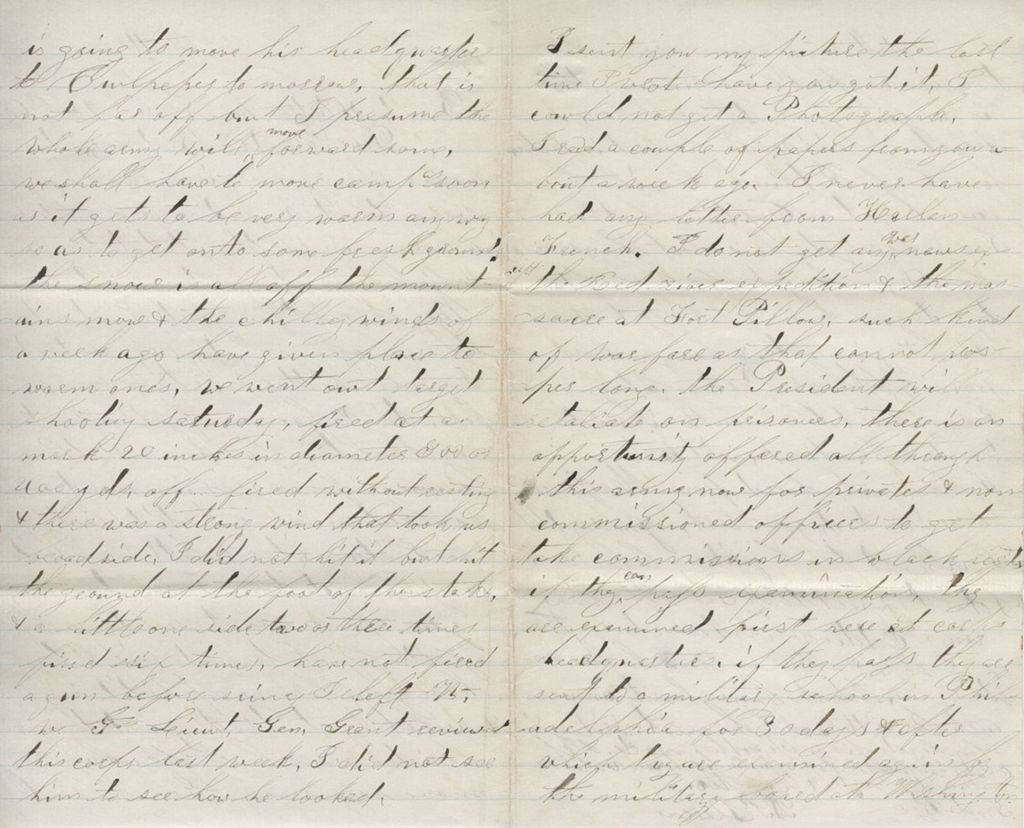 is going to move his headquarter
to Culpeper to morrow, that is
not far off but I presume the
whole army will move forward some,
we shall have to move camp soon
as it gets to be very warm any way
so as to get onto some fresh ground.
the snow is all off the mount
ains now & the chilly winds of
a week ago have given place to
warm ones, we went out target
shooting saturday, fired at a
mark 20 inches in diameter 300 or
400 yds, off fired without resting
& there was a strong wind that took us
broad side, I did not hit it but hit
the ground at the foot of the stake,
& a little one side two or three times
fired six times, have not fired
a gun before since I left
Lieut, Gen, Grant reviewed
this corps last week, I did not see
him to see how he looked.
I sent you my picture the last
time I wrote, have you got it, I
could not get a Photograph,
I read a couple of papers from you a-
bout a week ago. I never have
had any letter from Harlan
French. I do not get any news
the Red river expedition & the mas
sacre at Fort Pillow, such kind
of warfare as that cannot pros-
per long. the President will
retaliate on prisoners, there is an
opportunity offered all through
this army now for privates & non
commissioned officers to get
take commissions in black regts,
if they can pass examination, they
are examined first here at corps
headquarters. if they pass they are
sent to a military school in Phi
ladelphia for 30 days & after
which they are examined again by
the military board at Washington